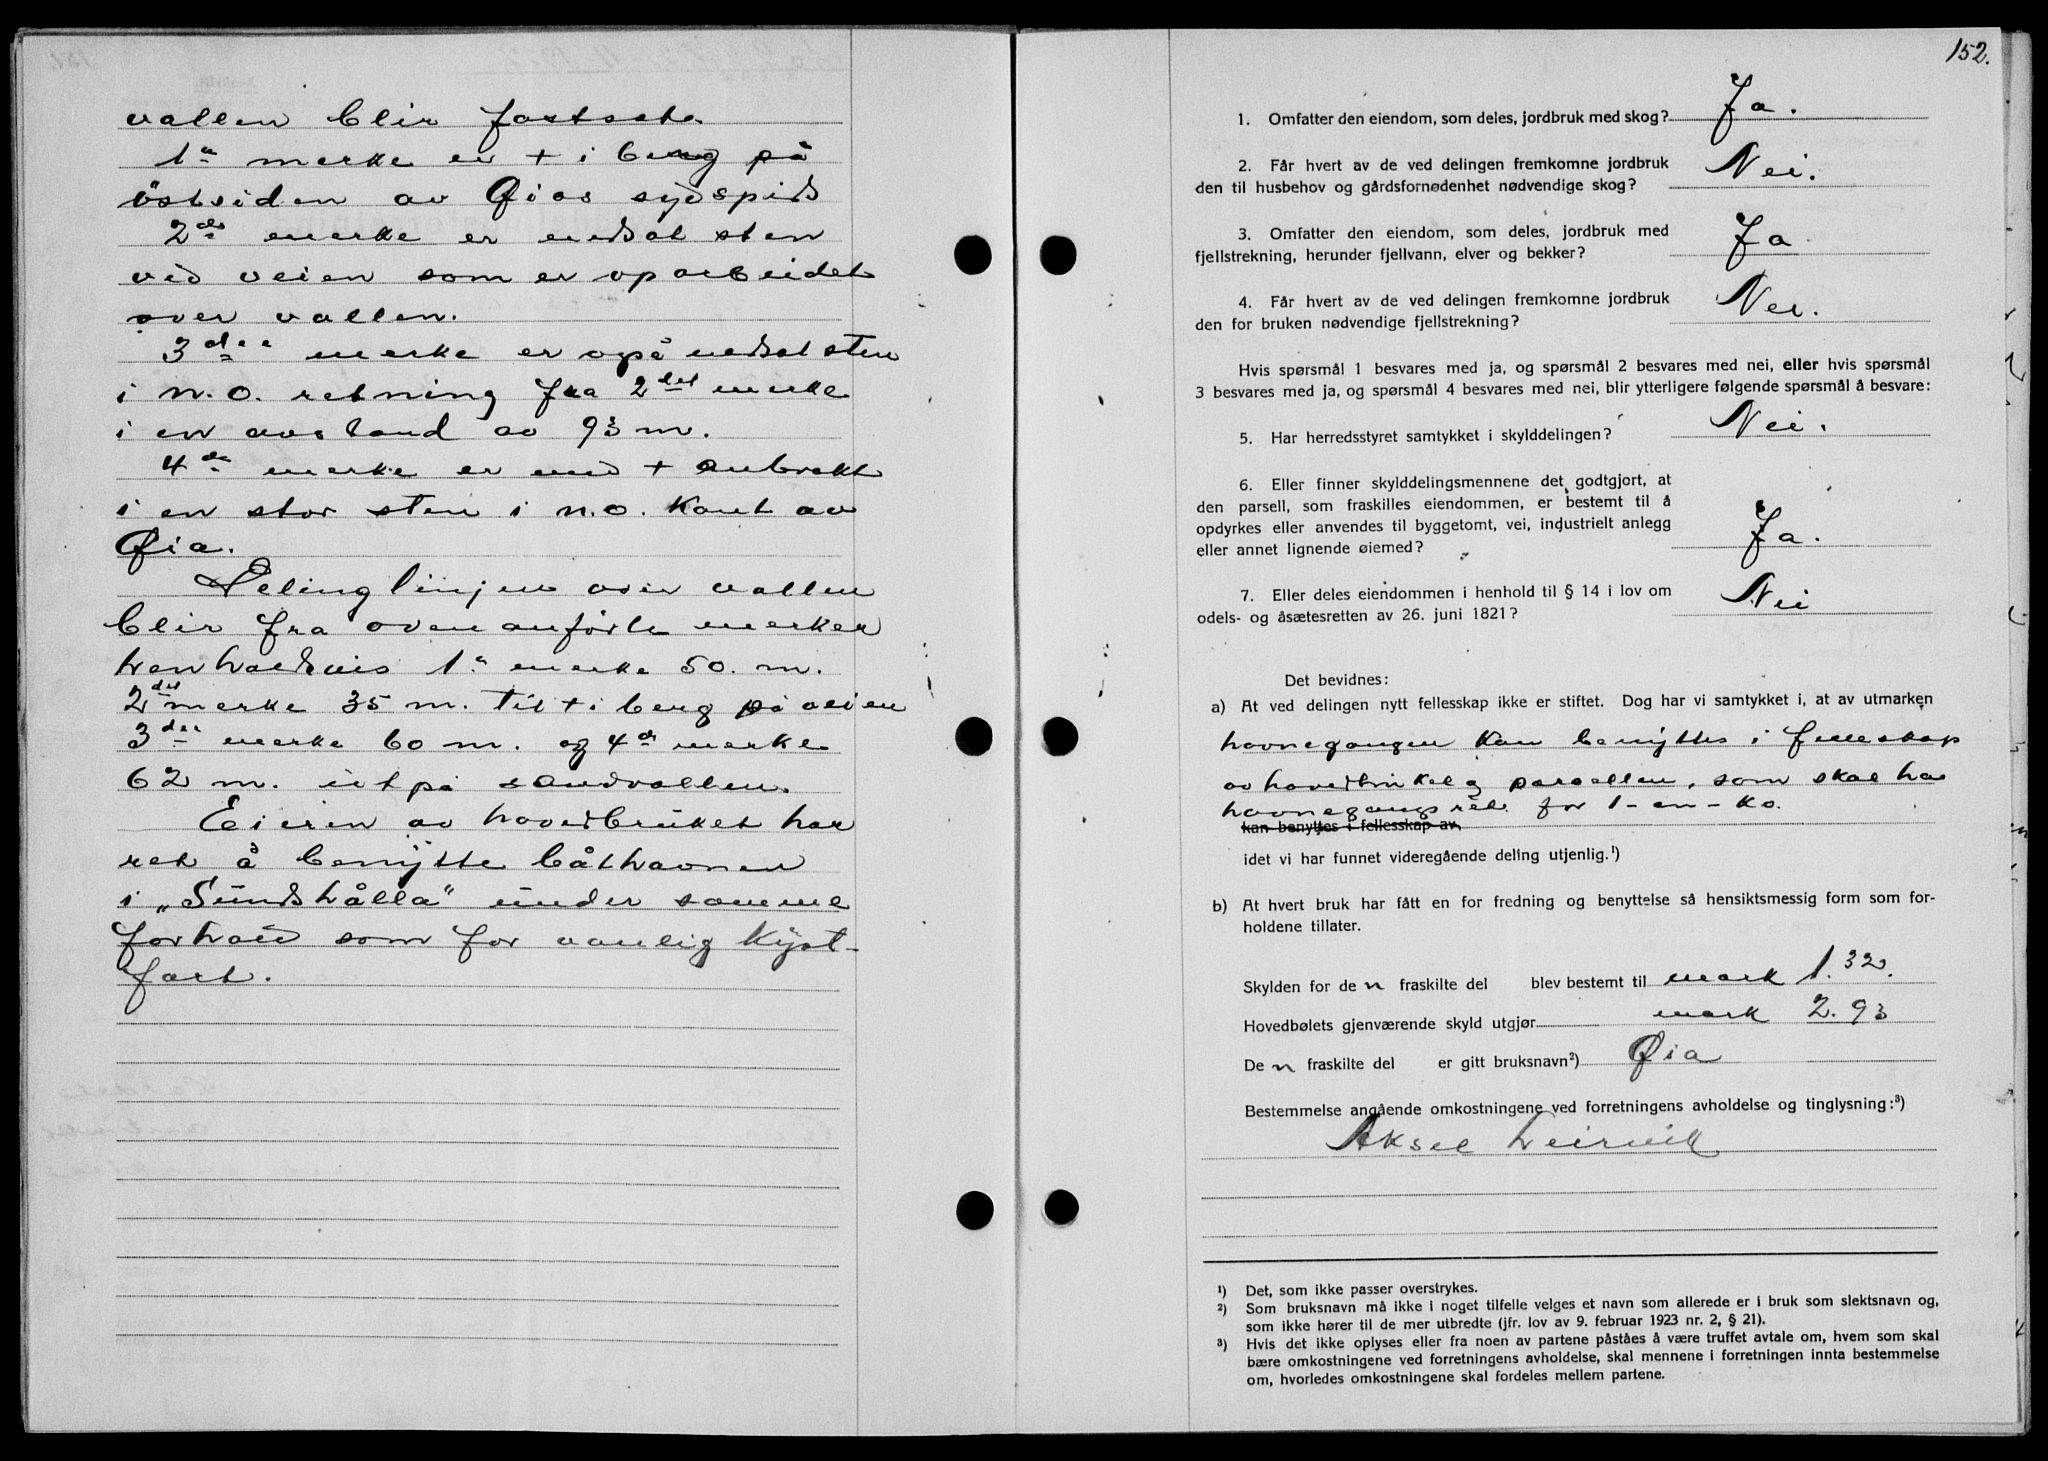 vallen blir fastsat.
1ste merke er + i berg på
östsiden av Øias sydspids
2det merke er nedsat sten
ved veien som er oparbeidet
over vallen.
3die merke er også nedsat sten
i N.O. retning fra 2det merke
i en avstand av 93 m.
4de merke er med + anbrakt
i en stor sten i N.O. kant av
Øia.
Deling linjen over vallen
blir fra ovenanförte merker
henholdsvis 1ste merke 50. m.
2det merke 35 m. til + i berg på veien
3die merke 60 m. og 4de merke
62 m. ut på sandvallen.
Eieren av hovedbruket har
ret å benytte båthavnen
i „Sundshålla" under samme
forhold som for vanlig kyst-
fart.
152.
1. Omfatter den eiendom, som deles, jordbruk med skog? Ja.
2. Får hvert av de ved delingen fremkomne jordbruk
den til husbehov og gårdsfornødenhet nødvendige skog? Nei.
3. Omfatter den eiendom, som deles, jordbruk med
fjellstrekning, herunder fjellvann, elver og bekker? Ja
4. Får hvert av de ved delingen fremkomne jordbruk
den for bruken nødvendige fjellstrekning? Nei.
Hvis spørsmål 1 besvares med ja, og spørsmål 2 besvares med nei, eller hvis spørsmål
3 besvares med ja, og spørsmål 4 besvares med nei, blir ytterligere følgende spørsmål å besvare:
5. Har herredsstyret samtykket i skylddelingen? Nei.
6. Eller finner skylddelingsmennene det godtgjort, at
den parsell, som fraskilles eiendommen, er bestemt til å
opdyrkes eller anvendes til byggetomt, vei, industrielt anlegg
eller annet lignende øiemed? Ja.
7. Eller deles eiendommen i henhold til § 14 i lov om
odels- og åsætesretten av 26. juni 1821? Nei
Det bevidnes:
a) At ved delingen nytt fellesskap ikke er stiftet. Dog har vi samtykket i, at av utmarken
havnegangen kan benyttes i fellesskap
av hovedbruket og parsellen, som skal ha
havnegangsret for 1-en-ko.
kan benyttes i fellesskap av
idet vi har funnet videregående deling utjenlig.¹)
b) At hvert bruk har fått en for fredning og benyttelse så hensiktsmessig form som for-
holdene tillater.
Skylden for den fraskilte del blev bestemt til mark 1.32.
Hovedbølets gjenværende skyld utgjør mark 2.93
Den fraskilte del er gitt bruksnavn²) Øia
Bestemmelse angående omkostningene ved forretningens avholdelse og tinglysning:³)
Aksel Leirvik
¹) Det, som ikke passer overstrykes.
²) Som bruksnavn må ikke i noget tilfelle velges et navn som allerede er i bruk som slektsnavn og,
som ikke hører til de mer utbredte (jfr. lov av 9. februar 1923 nr. 2, § 21).
³) Hvis det ikke oplyses eller fra noen av partene påståes å være truffet avtale om, hvem som skal
bære omkostningene ved forretningens avholdelse, skal mennene i forretningen innta bestemmelse
om, hvorledes omkostningene skal fordeles mellem partene.